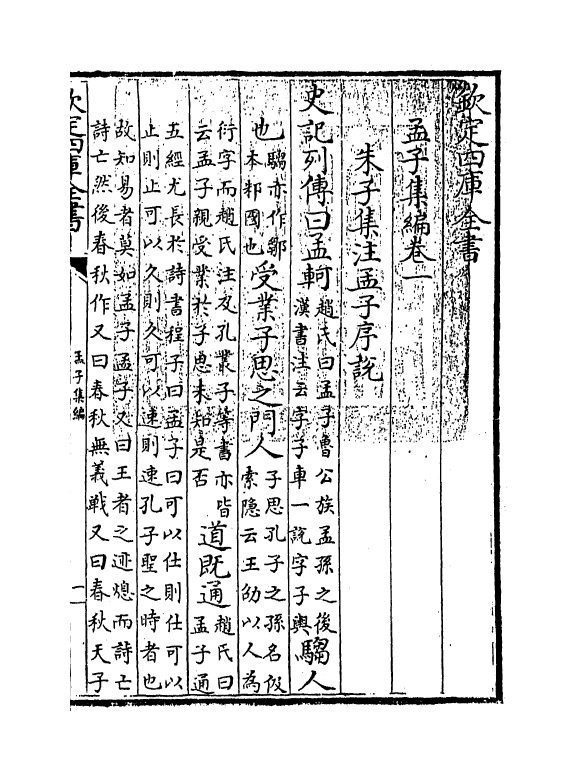 欽定四庫全書
孟子集編卷一
朱子集注孟子序說
史記列傳曰孟軻趙氏曰孟子魯公族孟孫之後漢書注云字子車一說字子輿騶人
也騶亦作鄒本邾國也受業子思之門人子思孔子之孫名伋索隱云王劭以人為
衍字而趙氏注及孔叢子等書亦皆云孟子親受業於子思未知是否道既通趙氏曰孟子通
五經尤長於詩書程子曰孟子曰可以仕則仕可以
止則止可以久則久可以速則速孔子聖之時者也
故知易者莫如孟子孟子又曰王者之迹熄而詩亡
詩亡然後春秋作又曰春秋無義戰又曰春秋天子
欽定四庫全書
孟子集編
一